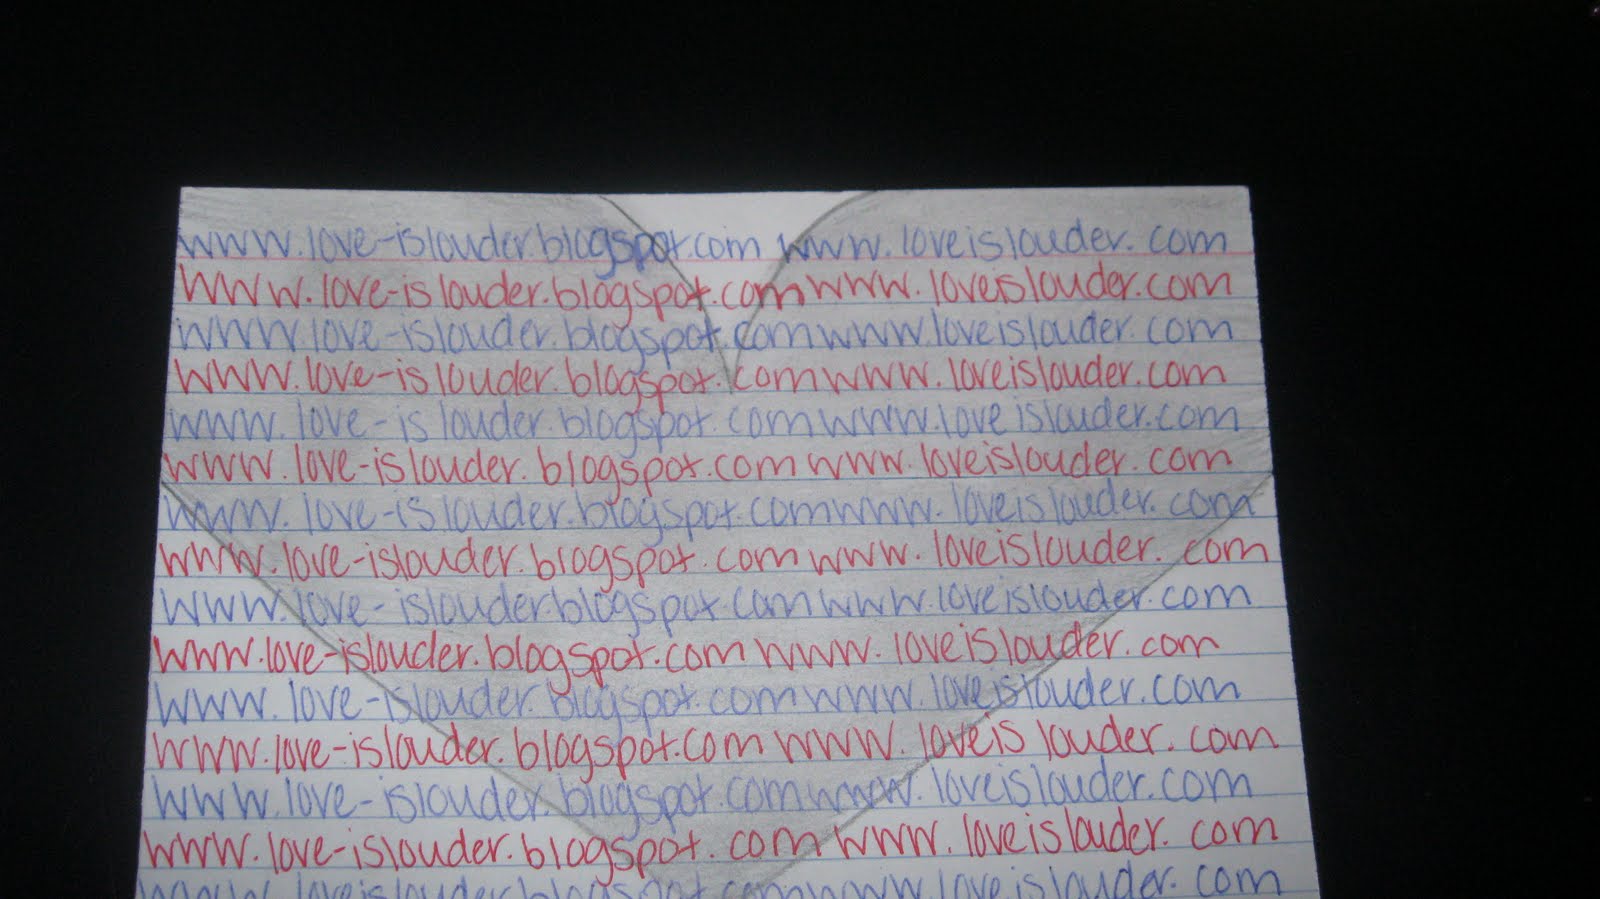 www.love-islouder.blogspot.com www.loveislouder.com
www.love-islouder.blogspot.com www.loveislouder.com
www.love-islouder.blogspot.com www.loveislouder.com
www.love-islouder.blogspot.com www.loveislouder.com
www.love-islouder.blogspot.com www.loveislouder.com
www.love-islouder.blogspot.com www.loveislouder.com
www.love-islouder.blogspot.com www.loveislouder.com
www.love-islouder.blogspot.com www.loveislouder.com
www.love-islouderblogspot.com www.loveislouder.com
www.love-islouder.blogspot.com www.loveislouder.com
www.love-islouder.blogspot.com www.loveislouder.com
www.love-islouder.blogspot.com www.loveislouder.com
www.love-islouder.blogspot.com www.loveislouder.com
www.love-islouder.blogspot.com www.loveislouder.com
www.loveislouder.blogspot.com www.loveislouder.com